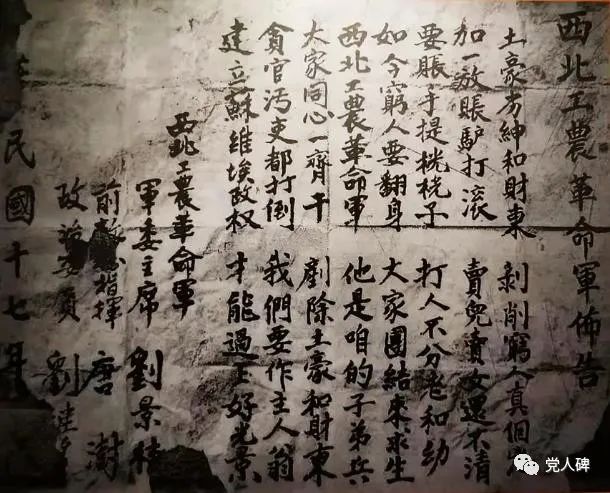 西北工農革命軍佈告
土豪劣紳和財東 剝削窮人真個
加一放賬驢打滚 賣兒賣女還不清
要賬手提桄桄子 打人不分老和幼
如今窮人要翻身 大家團結來求生
西北工農革命軍 他是咱的子弟兵
大家同心一齊干 剷除土豪和財東
貪官污吏都打倒 我們要作主人翁
建立蘇維埃政权 才能過上好光景
西北工農革命軍
軍委主席 劉景桂
前 指揮 唐澍
政治委員 劉
民國十七年
党人碑